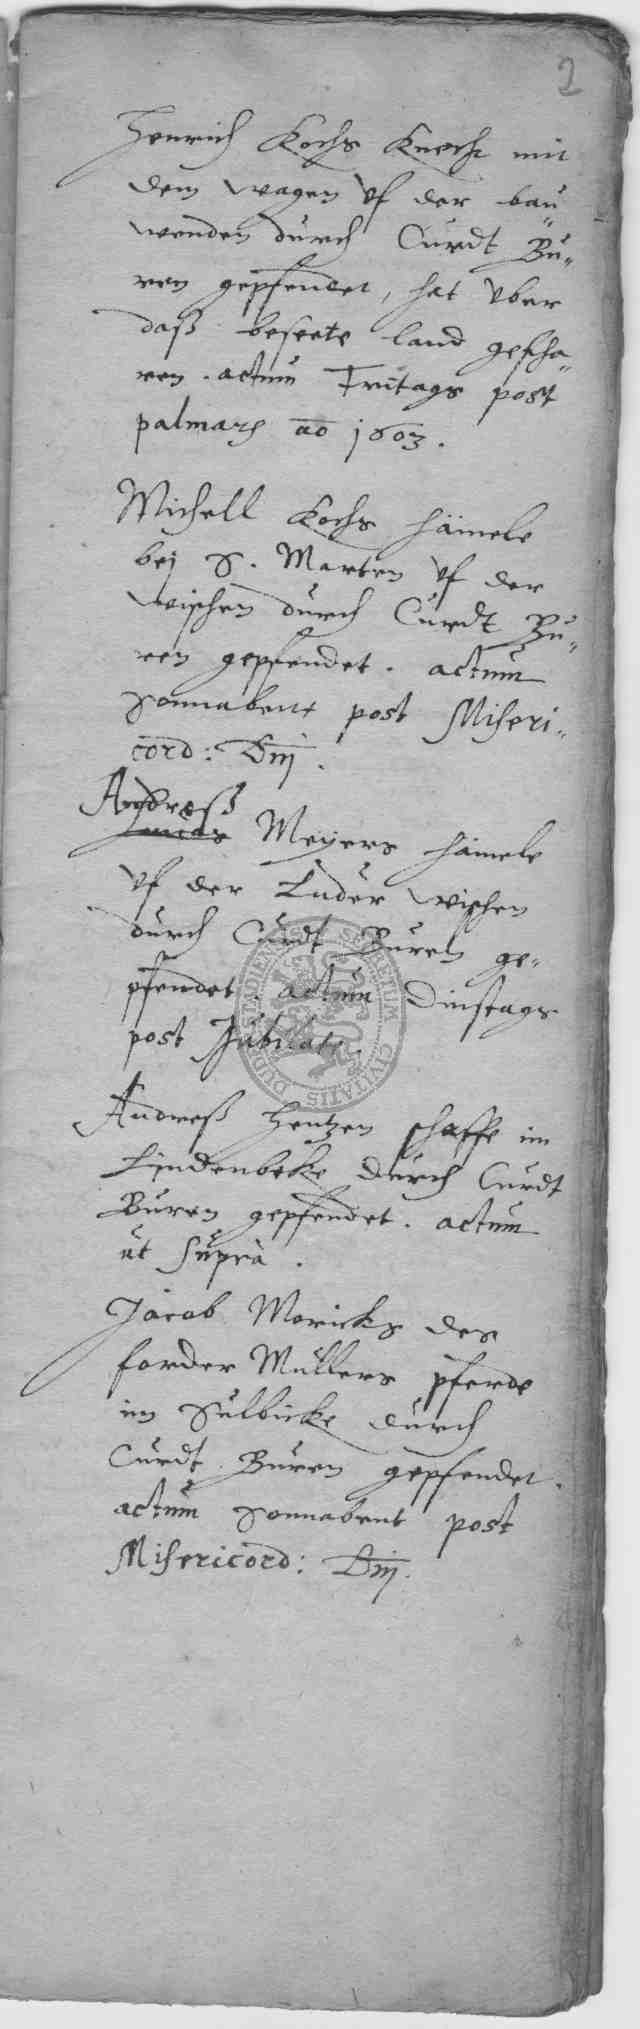 2
Henrich Kochs Knecht mit
dem wagen vf der bau„
wenden durch Curdt Bu„
ren gepfendet, hat vber
daß beseete land gefha„
ren. actum Fritags post
palmar~ ao 1603.
Michell Kochs hämele
bej S. Marten vf der
wischen durch Curdt Bu„
ren gepfendet. actum
Sonnabent post Miseri„
cord: Dnj.
Andreß
Meyers hämele
vf der Luder wischen
durch Curdt Buren ge„
pfendet. actum Dinstags
post Jubilate.
Andreß Hentzen schaffe im
Lindenbeke durch Curdt
Buren gepfendet. actum
ut suprà.
Jacob Moricks des
forder Mullers pferde
im Sulbicke durch
Curdt Buren gepfendet.
actum Sonnabent post
Misericord: Dnj.
SECRETUM CIVITATIS DUDERSTADIENSIS